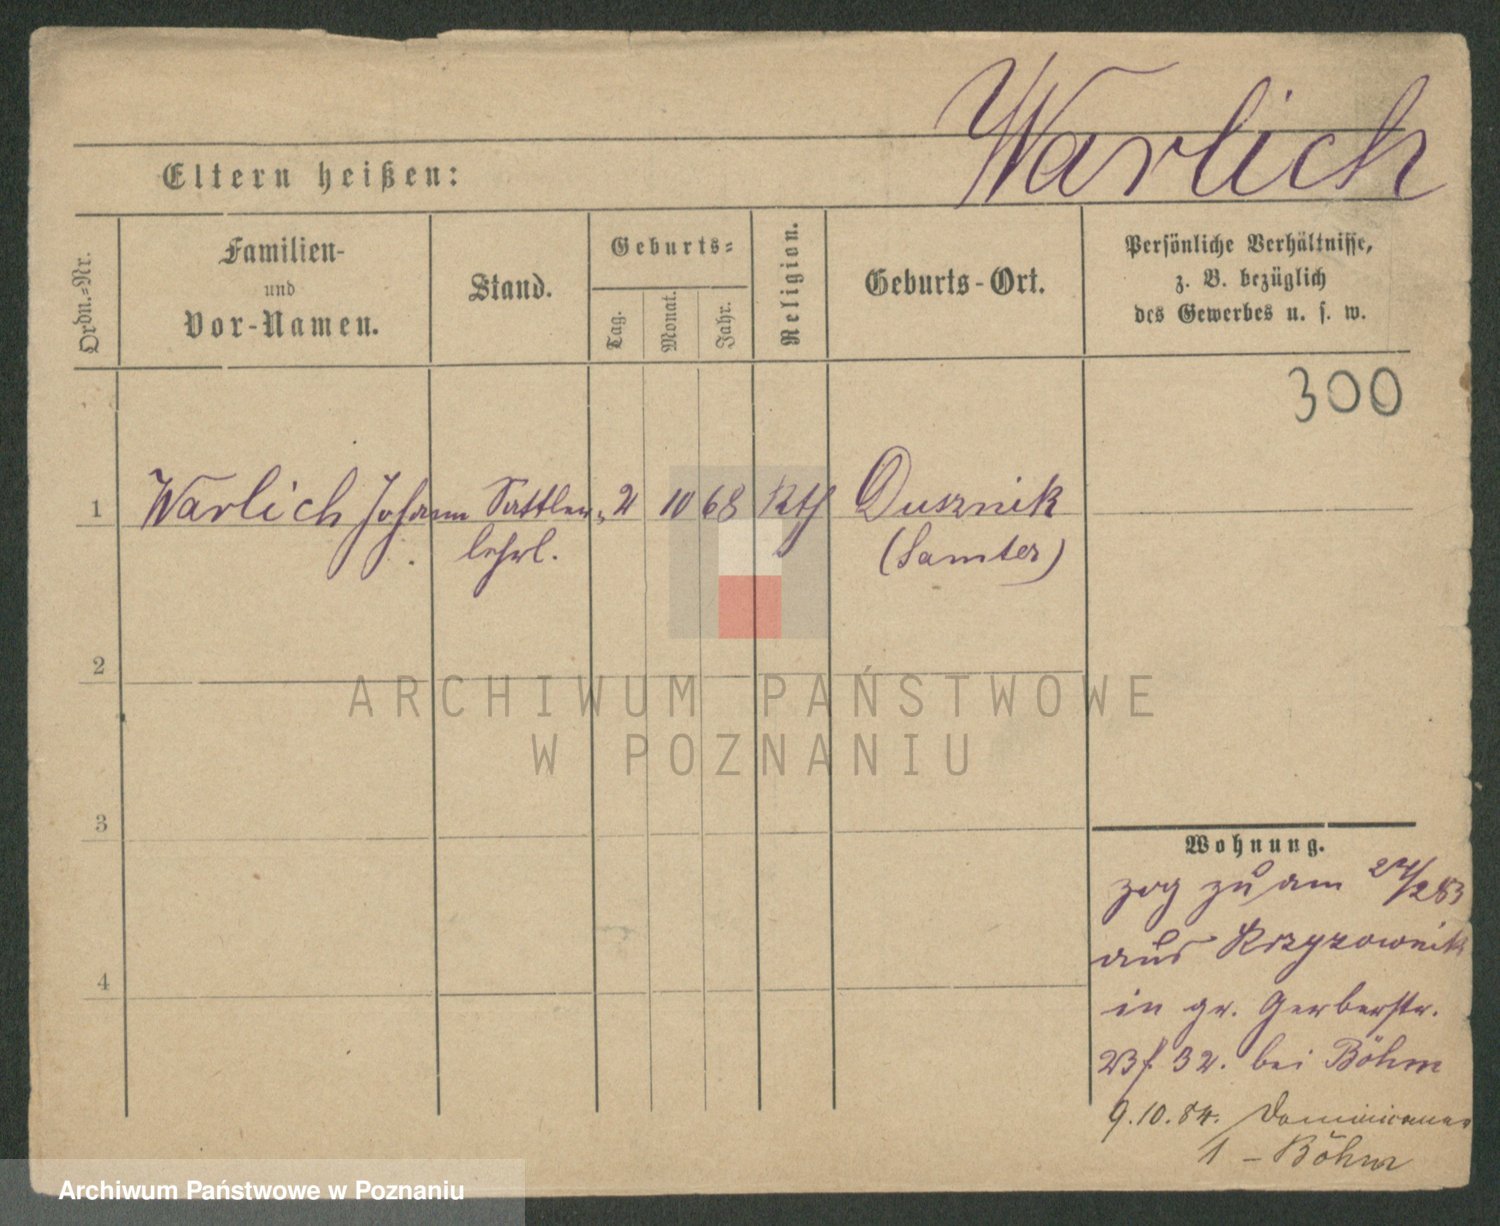 Warlich
Eltern heißen:
Ordn.=Nr.
Familien-
und
Vor-Namen.
Stand.
Geburts=
Tag.
Monat.
Jahr.
Religion.
Geburts-Ort.
Persönliche Verhältnisse,
z. B. bezüglich
des Gewerbes u. s. w.
300
1 Warlich Johann Sattler- 2 10 68 Kth Dusznik
lehrl. (Samter)
2
ARCHIWUM PAŃSTWOWE
W POZNANIU
3
Wohnung.
zog zu am 27/2 83
aus Krzyzownik
in gr. Gerberstr.
32. bei Böhm
4
9.10.84. Dominicaner
1 - Böhm
Archiwum Państwowe w Poznaniu